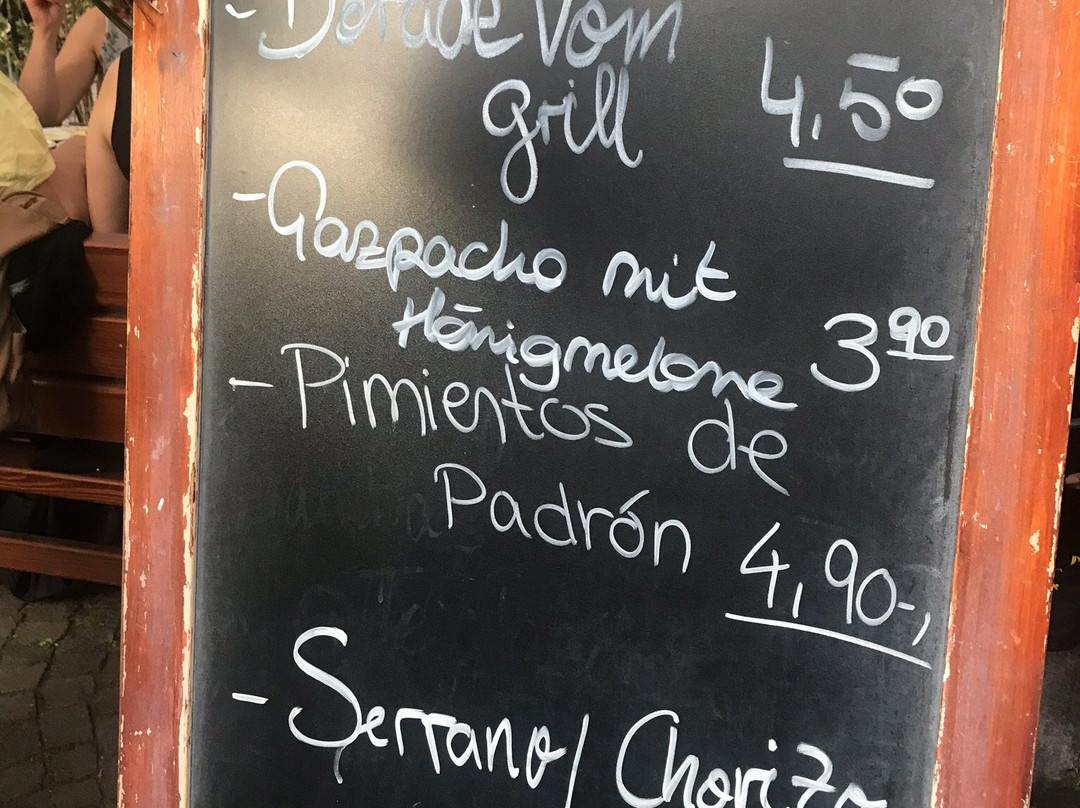 - Dorade vom
grill 4,50
- Gazpacho mit
Honigmelone 3 90
- Pimientos de
Padrón 4,90-,
- Serrano/Chorizo